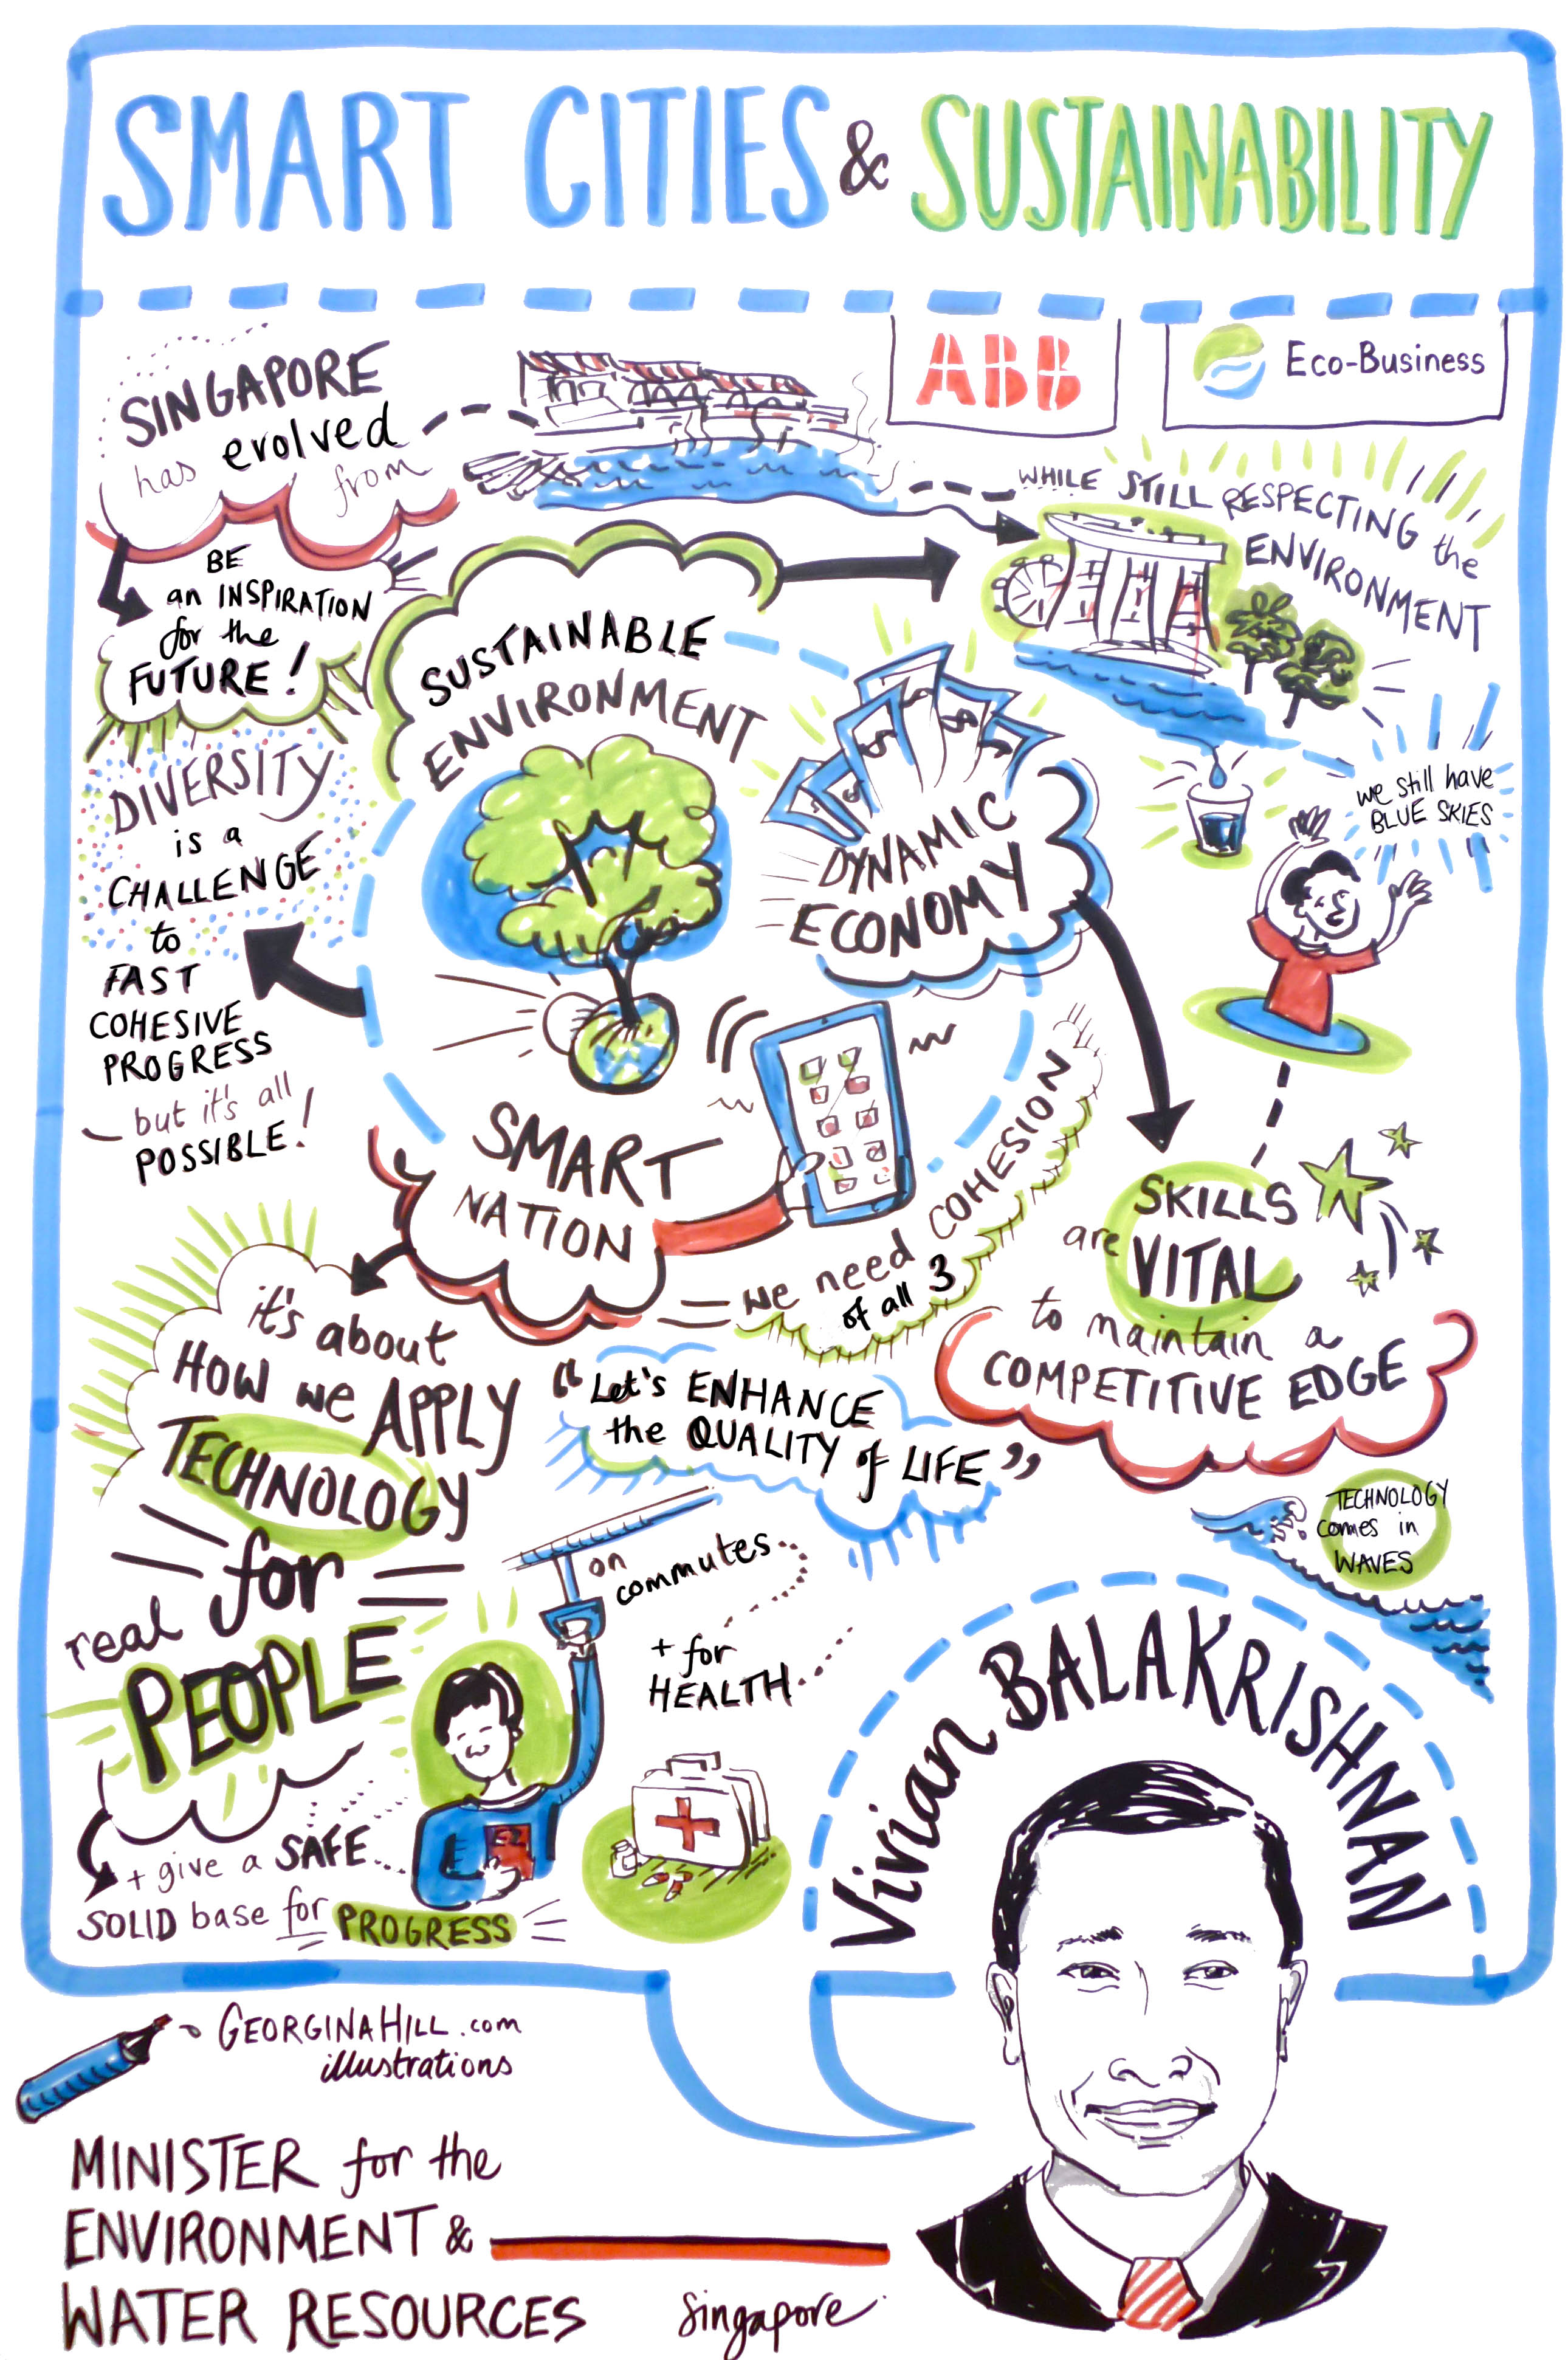 SMART CITIES & SUSTAINABILITY
ABB
Eco-Business
SINGAPORE
has evolved
from
WHILE STILL RESPECTING the
ENVIRONMENT
BE
an INSPIRATION
for the
FUTURE!
SUSTAINABLE
ENVIRONMENT
DYNAMIC
ECONOMY
we still have
BLUE SKIES
DIVERSITY
is a
CHALLENGE
to
FAST
COHESIVE
PROGRESS
but it's all
POSSIBLE!
SMART
NATION
= we need COHESION
of all 3
SKILLS
are VITAL
to maintain a
COMPETITIVE EDGE
it's about
HOW we APPLY
TECHNOLOGY
for
real
PEOPLE
"Let's ENHANCE
the QUALITY of LIFE"
TECHNOLOGY
comes in
WAVES
on
commutes
+ for
HEALTH
EZ
+ give a SAFE
SOLID base for PROGRESS
Vivian BALAKRISHNAN
GEORGINAHILL.com
illustrations
MINISTER for the
ENVIRONMENT &
WATER RESOURCES
Singapore